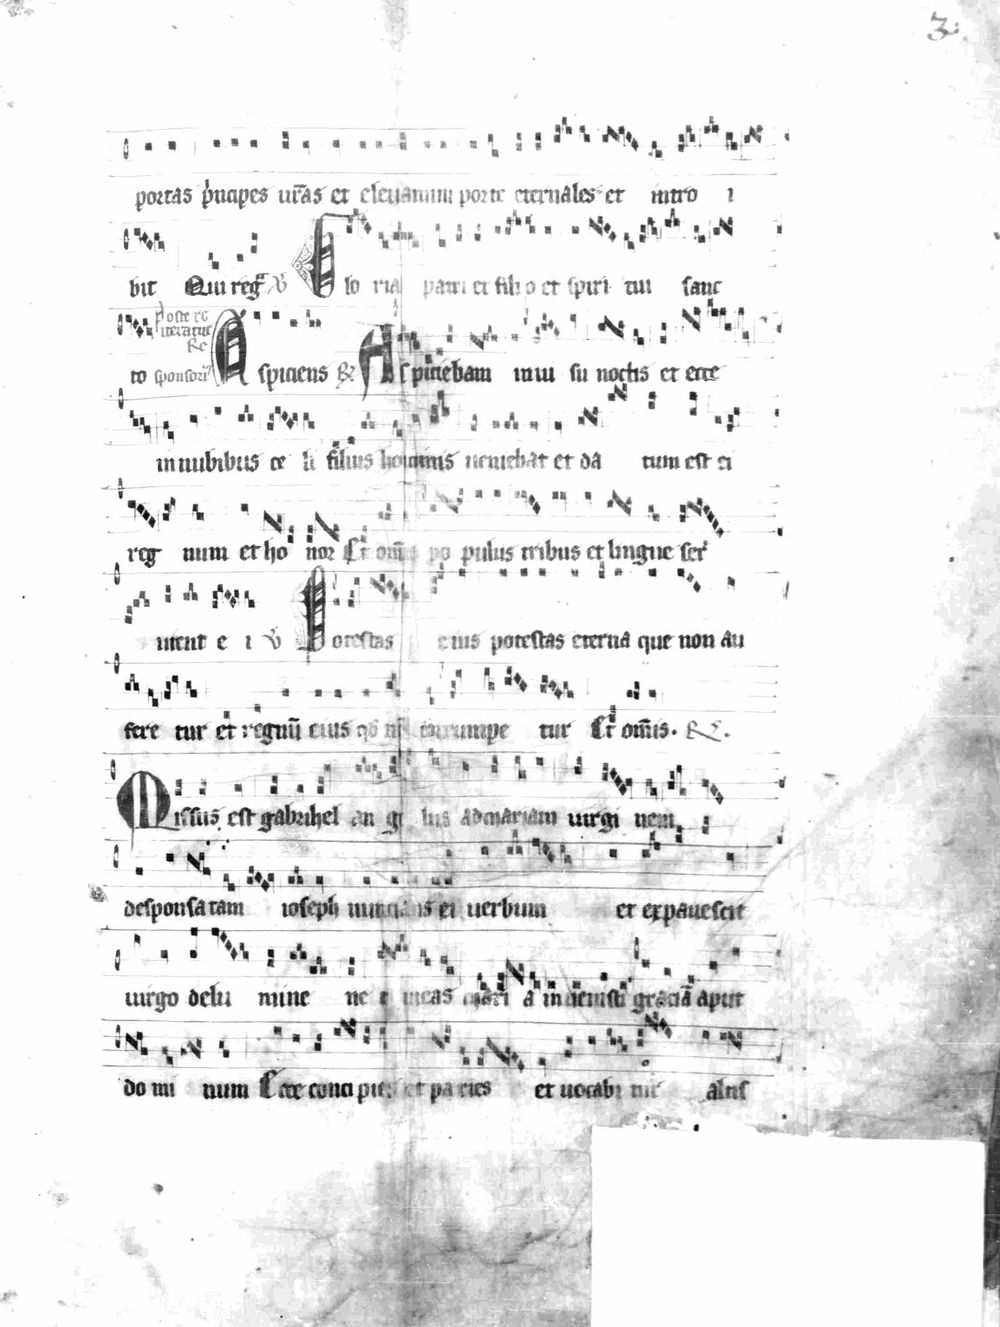 3
portas p̄ncipes vr̄as et eleuamini porte eternales et intro i
bit Qui reg̃ ꝟ Glo ria patri et filio et spiri tui sanc
Post re
iteratur
Re
to sponsori Aspiciens ℟ Aspiciebam in ui su noctis et ecce
in nubibus ce li filius hominis ueniebat et da tum est ei
reg num et ho nor Et om̄s po pulus tribus et lingue ser
uient e i ꝟ Potestas eius potestas eterna que non au
fere tur et regnū eius qd̄ nō corrumpe tur Et om̄is. Re.
Missus est gabrihel an ge lus ad mariam uirgi nem
desponsatam ioseph nuncians ei uerbum et expauescit
uirgo de lu mine ne ti meas mari a in uenisti graciā aput
do mi num Ecce conci pies et pa ries et uocabi tur altis